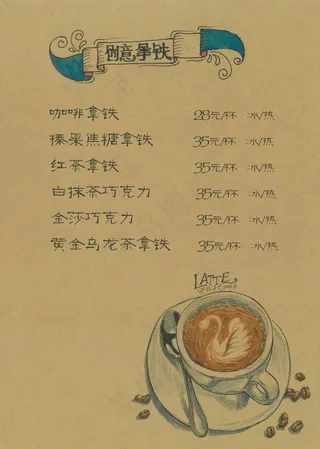 创意拿铁
咖啡拿铁 28元/杯 冰/热
榛果焦糖拿铁 35元/杯 冰/热
红茶拿铁 35元/杯 冰/热
白抹茶巧克力 35元/杯 冰/热
金莎巧克力 35元/杯 冰/热
黄金乌龙茶拿铁 35元/杯 冰/热
LATTE